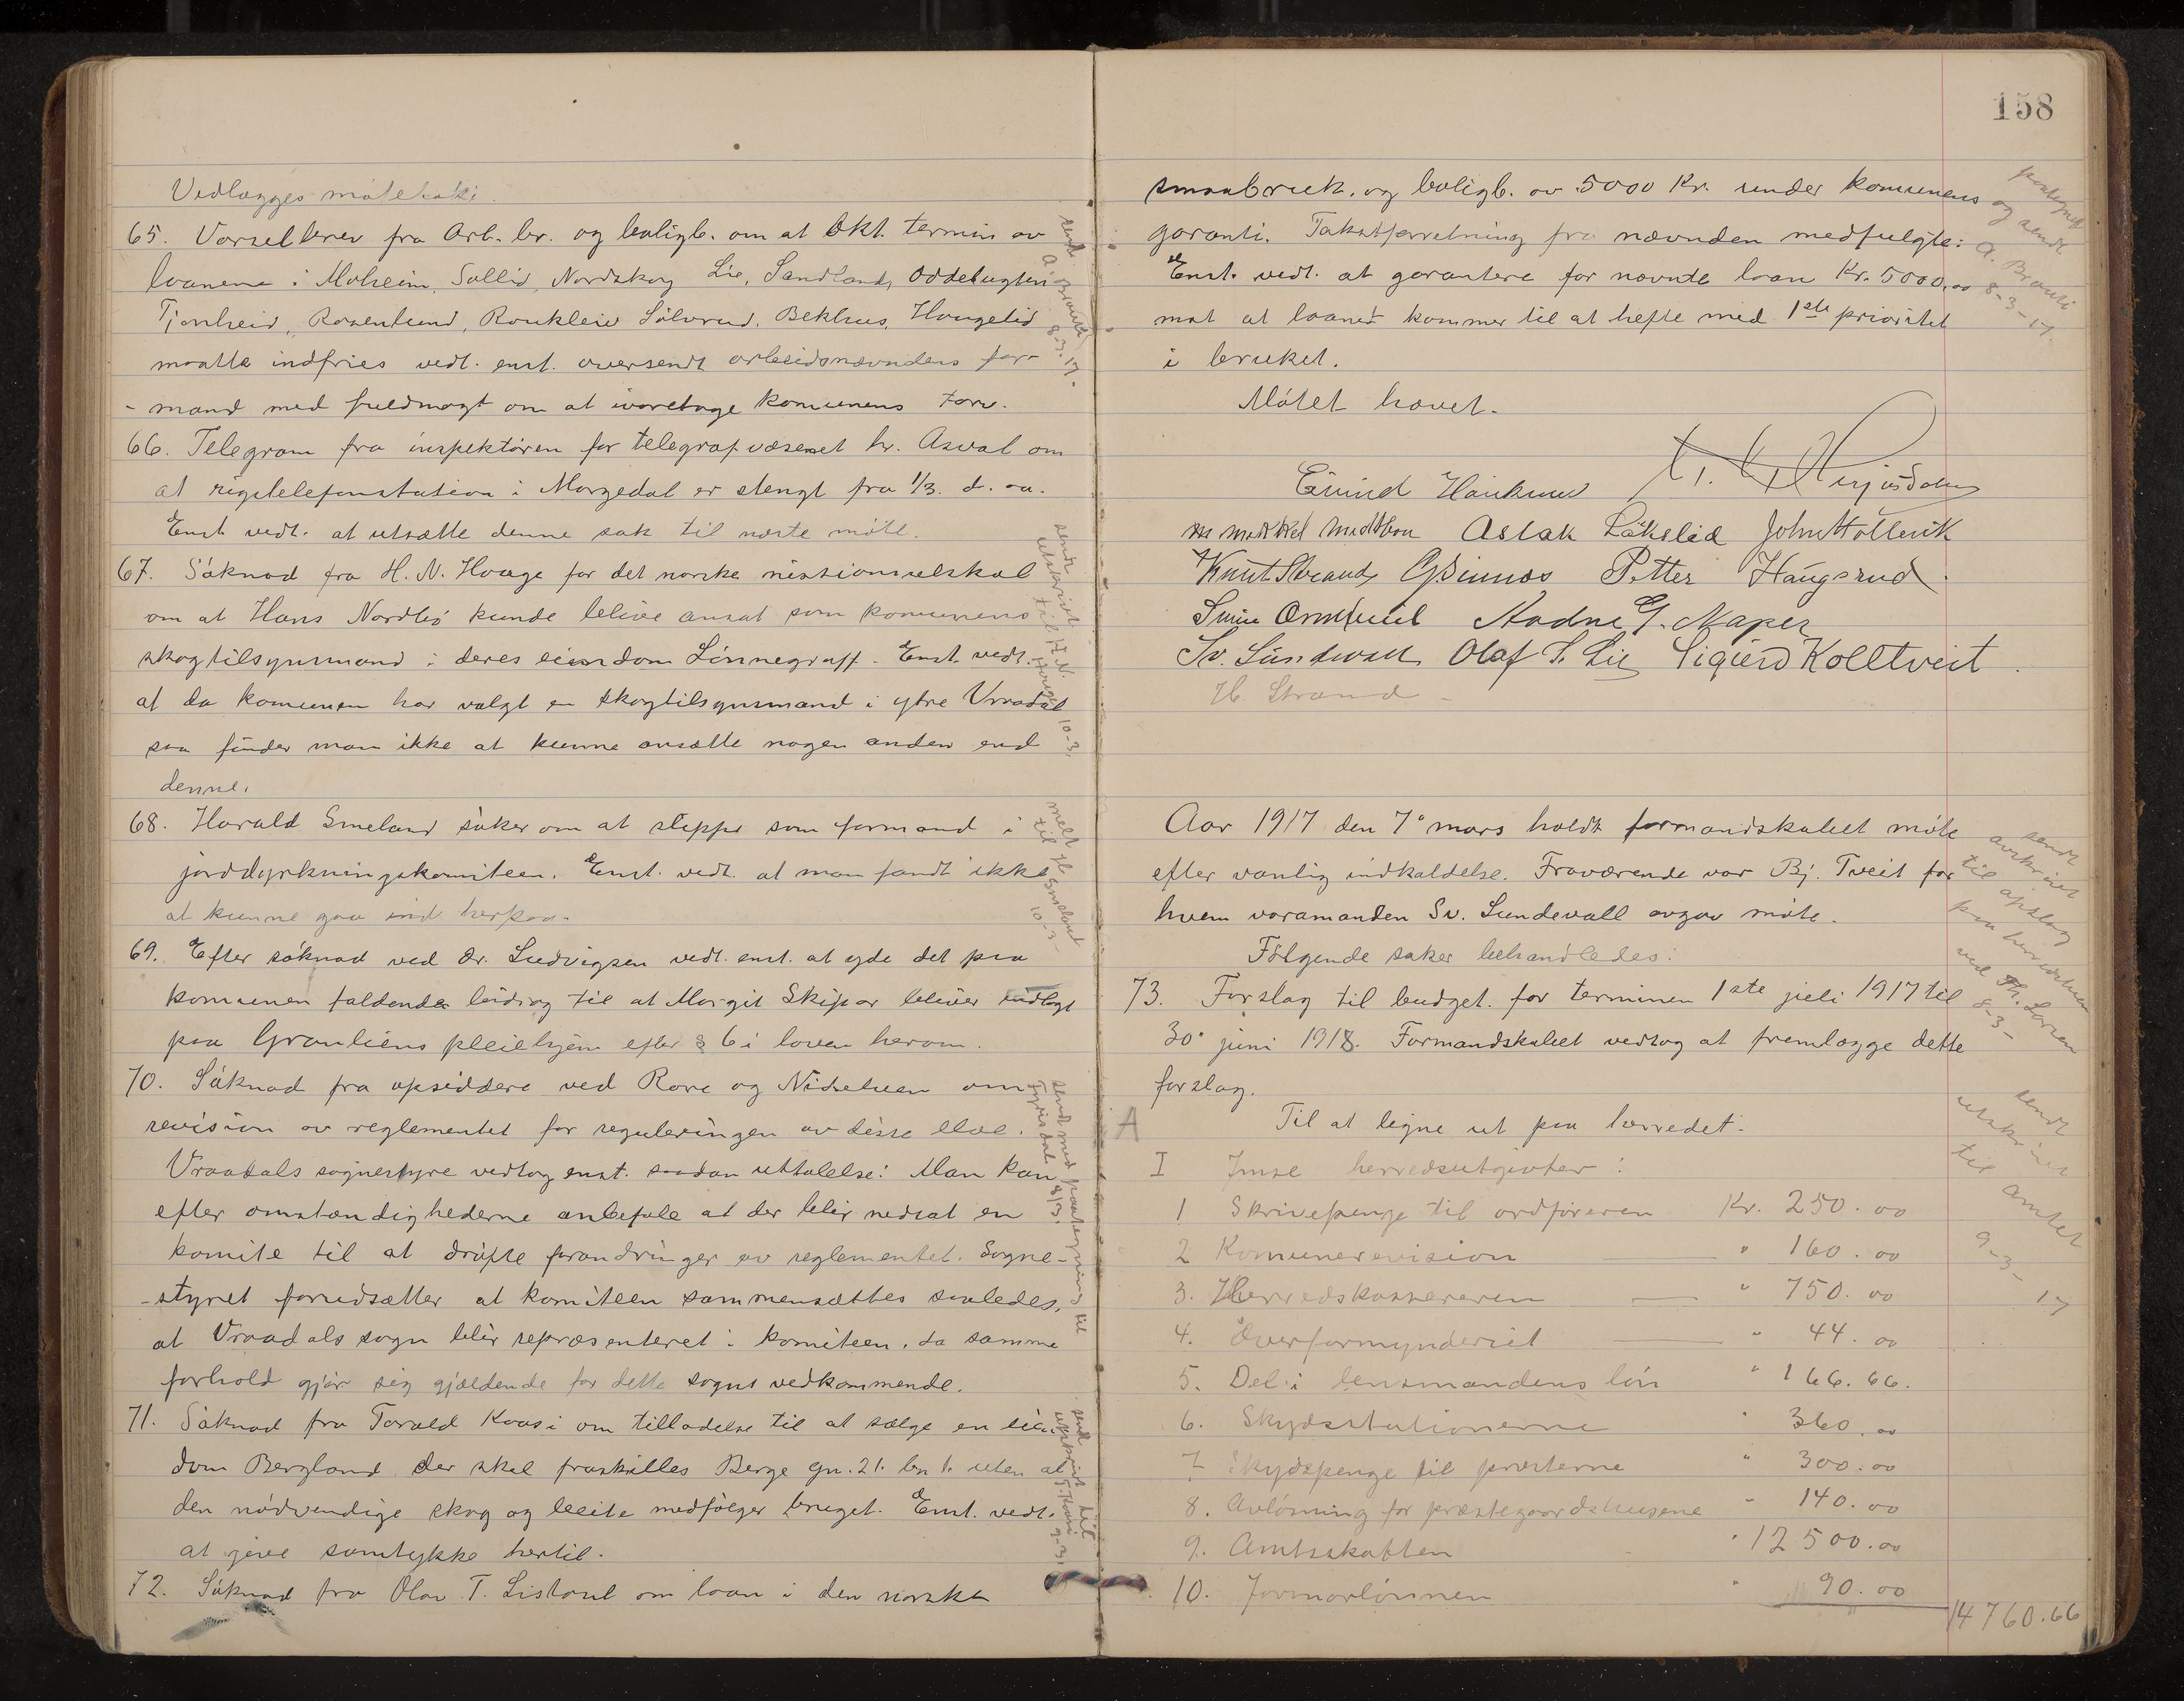 Vedlægges møtebok i.
65. Varselbrev fra Arb. br. og boligb. om at okt. termin av
loanene i Moheim, Sollid, Nordskog Lie, Sandland, Oddebugten
Tjønheid, Rosenlund, Roukleiv Sølvrud, Bekhus, Haugelid
maatte indfries vedt. enst. oversendt arbeidsnævndens for-
- mand med fuldmagt om at ivaretage komunens tarv.
66. Telegram fra inspektøren for telegrafvæsenet hr. Asval om
at rigstelefonstation i Morgedal er stengt fra 1/3. d. aa.
Enst vedt. at utsætte denne sak til næste møte.
67. Søknad fra H. N. Hauge for det norske missionselskab
om at Hans Nordbø kunde bleive ansat som komunens
skogtilsynsmand i deres eiendom Linnegraff. Enst. vedt.
at da komunen har valgt en skogtilsynsmand i ytre Vraadal
saa finder man ikke at kunne ansætte nogen anden end
denne.
68. Harald Smeland søker om at sleppe som formand i
jorddyrkningskomiteen. Enst. vedt. at man fandt ikke
at kunne gaa ind herpaa.
69. Efter søknad ved Dr. Ludvigsen vedt. enst. at yde det paa
komunen faldende bidrag til at Margit Skipar bleiver indlagt
paa Granliens pleiehjem efter § 6 i loven herom.
70. Søknad fra opsiddere ved Rore og Nidelven om
revision av reglementet for reguleringen av disse elve.
Vraadals sognestyre vedtog enst. saadan uttalelse: Man kan
efter omstændighederne anbefale at der blir nedsat en
komite til at drøfte forandringer av reglementet. Sogne-
-styret forudsætter at komiteen sammensættes saaledes,
at Vraadals sogn blir repræsenteret i komiteen, da samme
forhold gjør sig gjældende for dette sogns vedkommende.
71. Søknad fra Torald Kaasi om tilladelse til at sælge en eien-
dom Bergland der skal fraskilles Berge gn. 21. bn 1. uten at
den nødvendige skog og beite medfølger bruget. Enst. vedt.
at give samtykke hertil.
72. Søknad fra Olav T. Listaul om loan i den norske
sendt
A. Brauti
8-3-17.
sendt utskrivt til H. N. Hauge 10-3.
meldt til H Smeland
10-3-
sendt med paategning til
Fyrisdal 8/3.
sendt utskrivt til
T. Kaasi 9-3.
158
smaabruk. og boligb. av 5000 Kr. under komunens
garanti. Takstforretning fra nævnden medfulgte:
Enst. vedt. at garantere for nævnte laan Kr. 5000,00
mot at laanet kommer til at hefte med 1ste prioritet
i bruket.
Møtet hævet.
Eivind Haukum
Mikkel Midtbøu Aslak Løkslid John Holtevik
Knut Strand Petter Haugsrud.
Aadne G. Naper
Sv. Sundevall Olaf T. Lie Sigurd Kolltveit.
H. Strand -
Aar 1917 den 7de mars holdt formandskabet møte
efter vanlig indkaldelse. Fraværende var Bj. Tveit for
hvem varamanden Sv. Sundevall avgav møte.
Følgende saker behandledes:
73. Forslag til budget. for terminen 1ste juli 1917 til
30te juni 1918. Formandskabet vedtog at fremlægge dette
forslag.
A Til at ligne ut paa herredet.
I Imse herredsutgivter:
1 Skrivepenge til ordføreren Kr. 250.00
2 Komunerevision " 160.00
3. Herredskassereren " 750.00
4. Overformynderiet " 44.00
5. Del i lensmandens løn " 166.66.
6. Skydsstationerne " 360.00
7 Skydspenge til præsterne " 300.00
8. Avløsning for præstegaardshusene " 140.00
9. Amtsskatten " 12500.00
10. Jormorlønnen " 90.00
14760.66
paategnet
og sendt
A. Brauti
8-3-17.
sendt
avskrivt
til opslag
paa herredshuset
8-3-
sendt
utskrivt
til amtet
9-3-
17